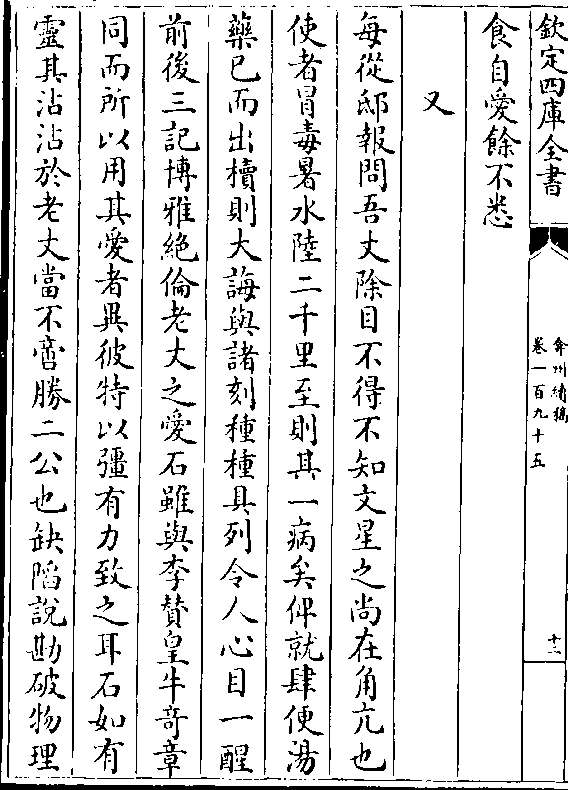 欽定四庫全書
弇州續稿
卷一百九十五
十三
食自愛餘不悉
又
每從邸報問吾丈除目不得不知文星之尚在角亢也
使者冒毒暑水陸二千里至則其一病矣俾就肆便湯
藥已而出櫝則大誨與諸刻種種具列令人心目一醒
前後三記博雅絕倫老丈之愛石雖與李贊皇牛奇章
同而所以用其愛者異彼特以彊有力致之耳石如有
靈其沾沾於老丈當不啻勝二公也缺陷說勘破物理